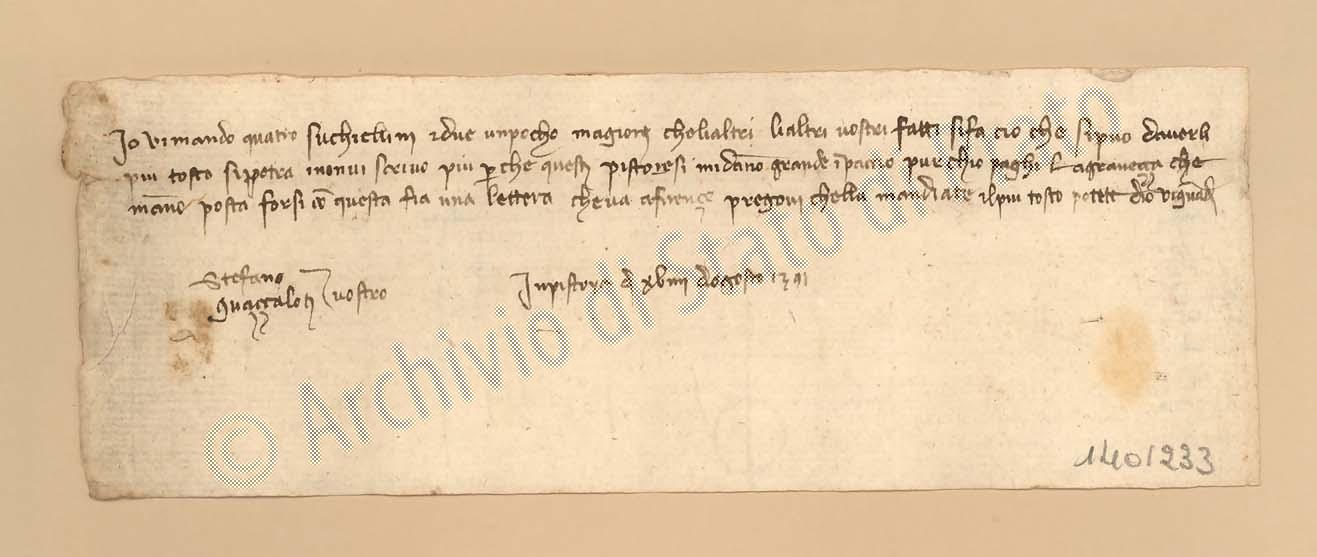 Jo vi mando quatro suchiellini e due un pocho magiori che li altri li altri vostri fatti si fa ciò che si può d averli
più tosto si potra i non vi scrivo più perche questi pistoresi mi dano grande ipaccio pur ch io paghi l agraveçça che
m ano posta forsi co questa fia una lettera che va a firençe pregovi che llu mandiate il più tosto potete dio vi guardi
Stefano
Guaççaloti vostro
In pistora d xviiii d ogosto 1391
1401233
© Archivio di Stato di Prato